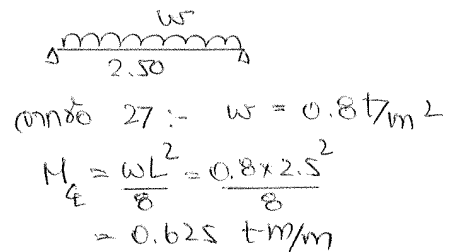 w
2.50
จากข้อ 27 :- w = 0.8 t/m2
M℄ = wL2/8 = 0.8 x 2.5 2/8
= 0.625 t-m/m